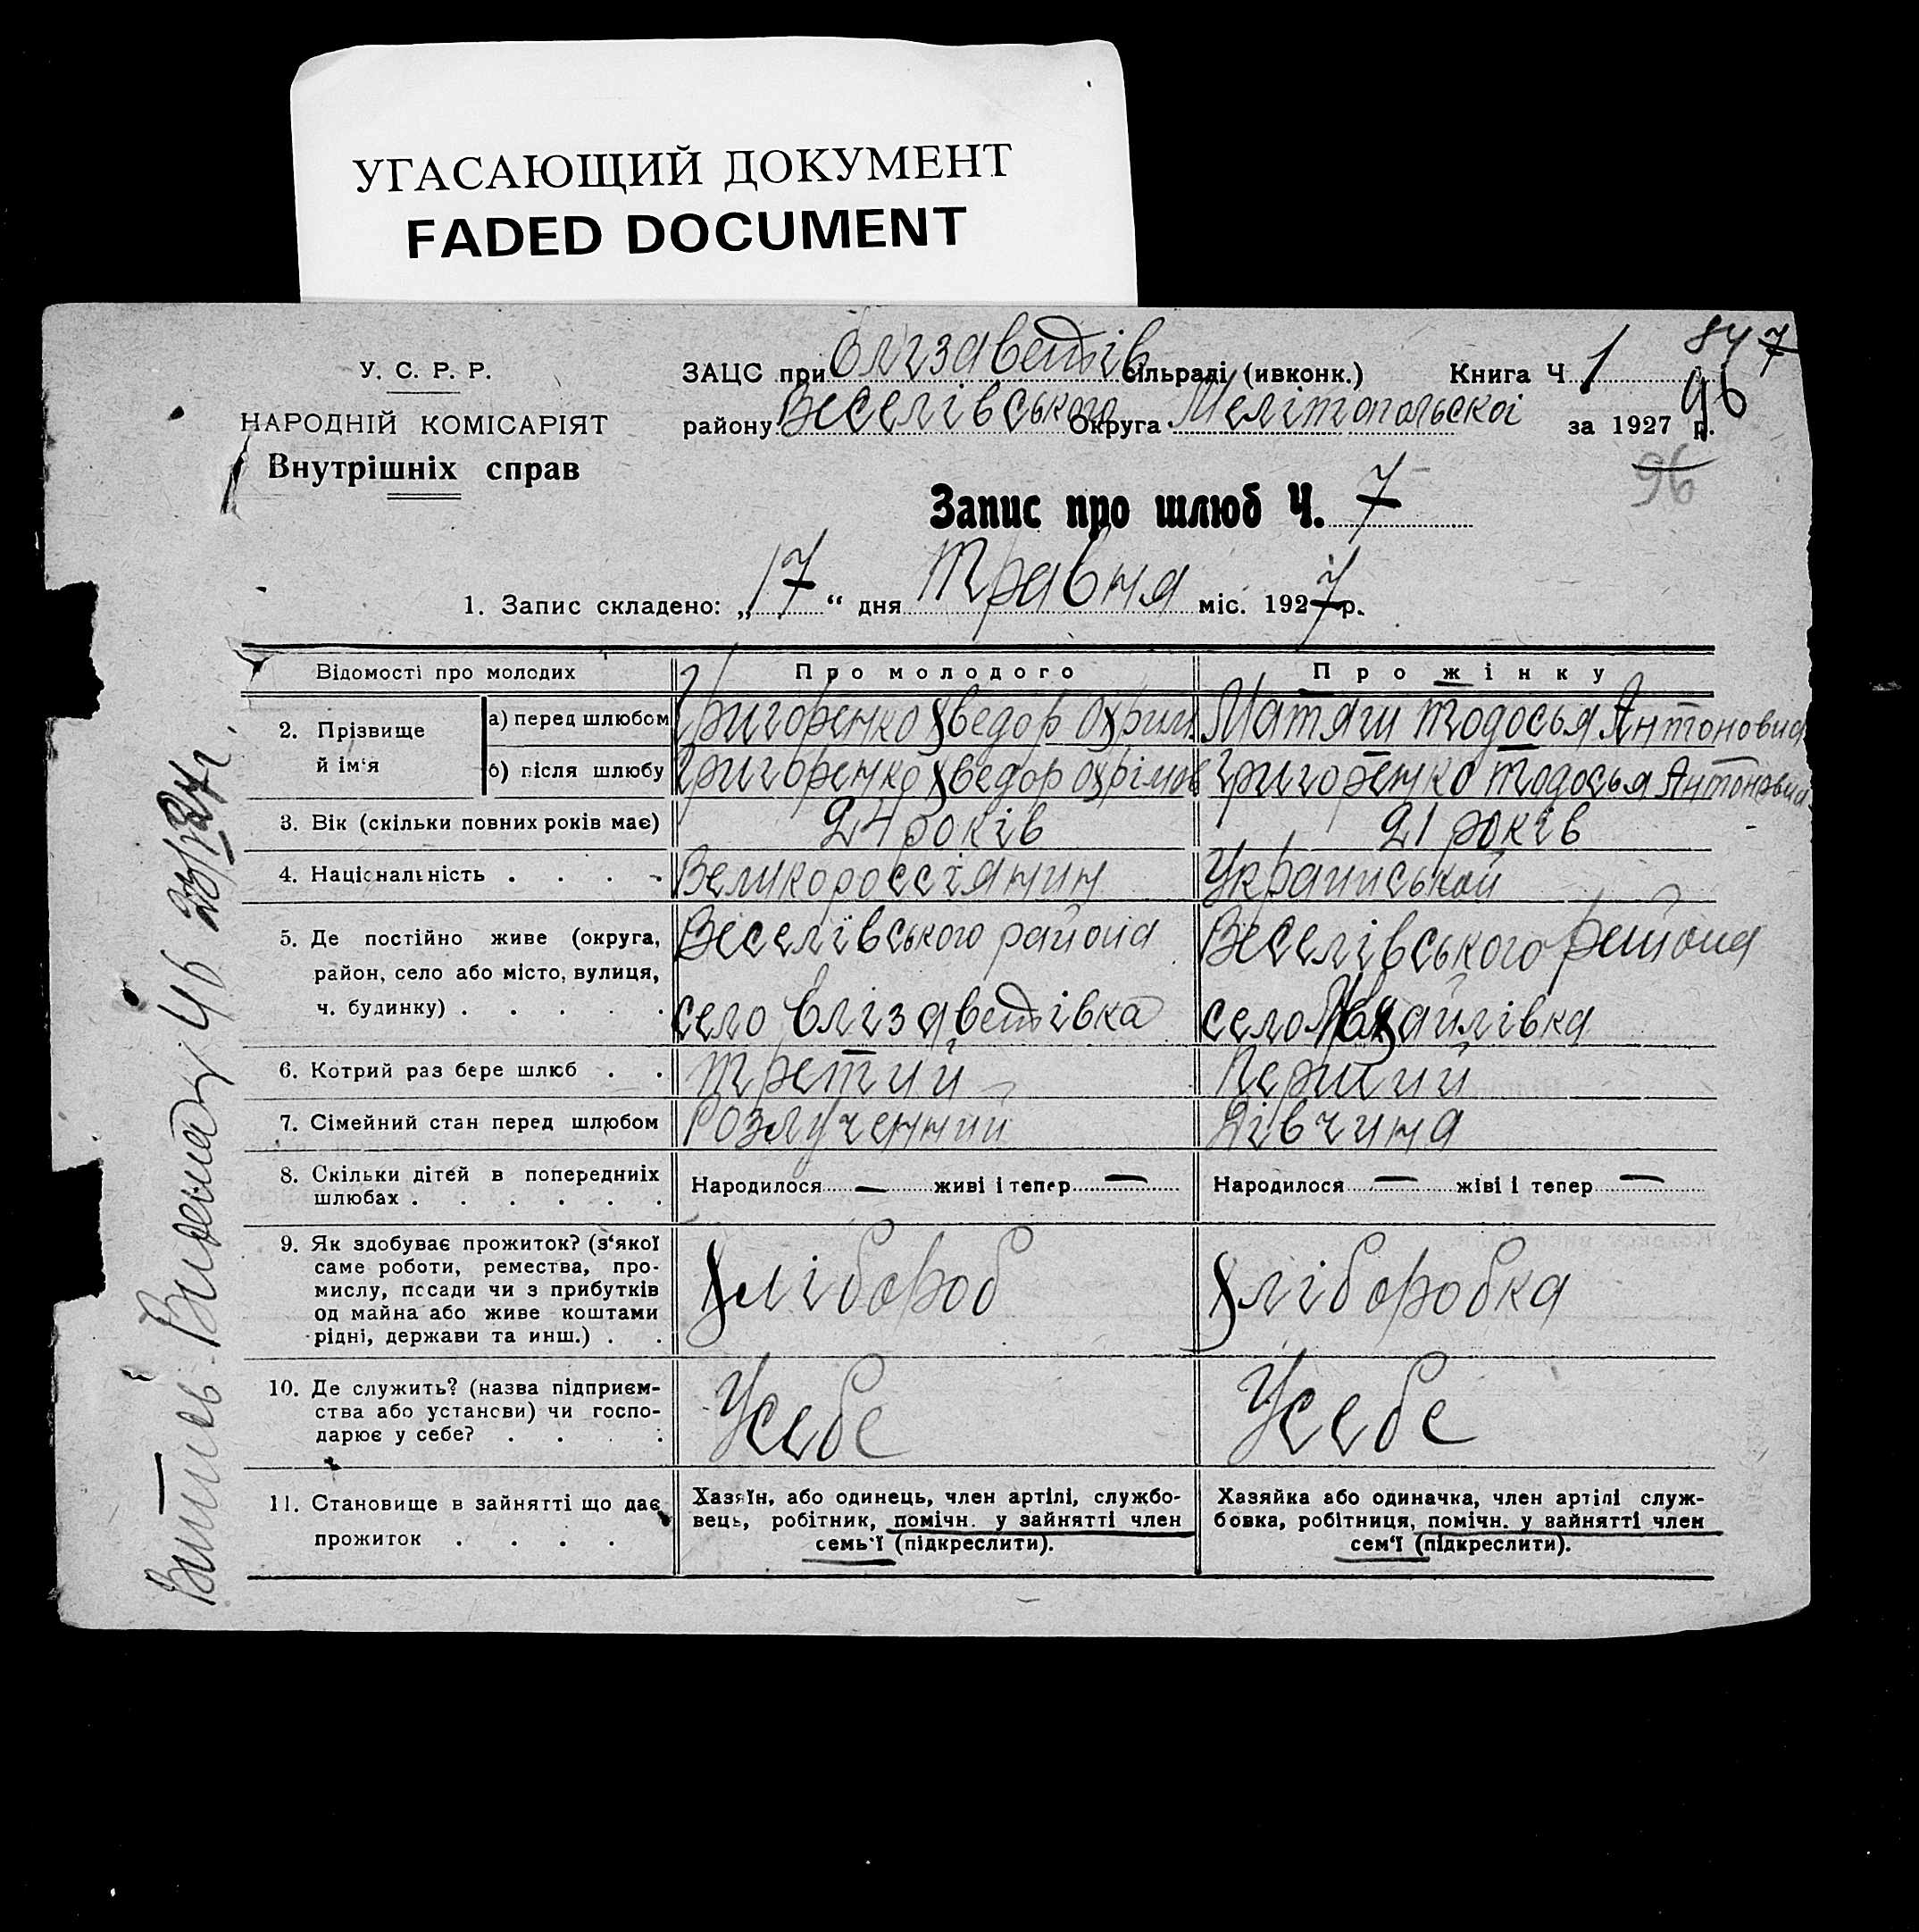 УГАСАЮЩИЙ ДОКУМЕНТ
FADED DOCUMENT
У. С. Р. Р.
НАРОДНІЙ КОМІСАРІЯТ
Внутрішніх справ
ЗАЦС при Єлізаветів сільраді (ивконк.) Книга Ч. 1
84 7
району Веселівського Округа Мелітопольскоі за 1927 р.
96
96
Запис про шлюб Ч. 7
1. Запис складено: „17“ дня Травня міс. 1927 р.
Відомості про молодих Про молодого Про жінку
2. Прізвище й ім'я
а) перед шлюбом Григоренко Хведор Охрим Матяш Тодосья Антоновна
б) після шлюбу Григоренко Хведор Охрімов Григоренко Тодосья Антоновна
3. Вік (скільки повних років має) 24 років 21 років
4. Національність . . . . Великороссіянин Украинськой
5. Де постійно живе (округа, Веселівського района Веселівського района
район, село або місто, вулиця,
ч. будинку) . . . . . село Єлізаветівка село Михайлівка
6. Котрий раз бере шлюб . . третий Перший
7. Сімейний стан перед шлюбом Розлученний Дівчина
8. Скільки дітей в попередниіх Народилося — живі і тепер — Народилося — жіві і тепер —
шлюбах . . . . . .
9. Як здобуває прожиток? (з'якої
саме роботи, ремества, про-
мислу, посади чи з прибутків Хлібороб Хліборобка
од майна або живе коштами
рідні, держави та инш.) . .
10. Де служить? (назва підприєм-
ства або установи) чи госпо- Усебе Усебе
дарює у себе? . . . .
11. Становище в зайнятті що дає
прожиток . . . .
Хазяїн, або одинець, член артілі, службо-
вець, робітник, помічн. у зайнятті член
семь'ї (підкреслити).
Хазяйка або одиначка, член артілі служ-
бовка, робітниця, помічн. у зайнятті член
сем'ї (підкреслити).